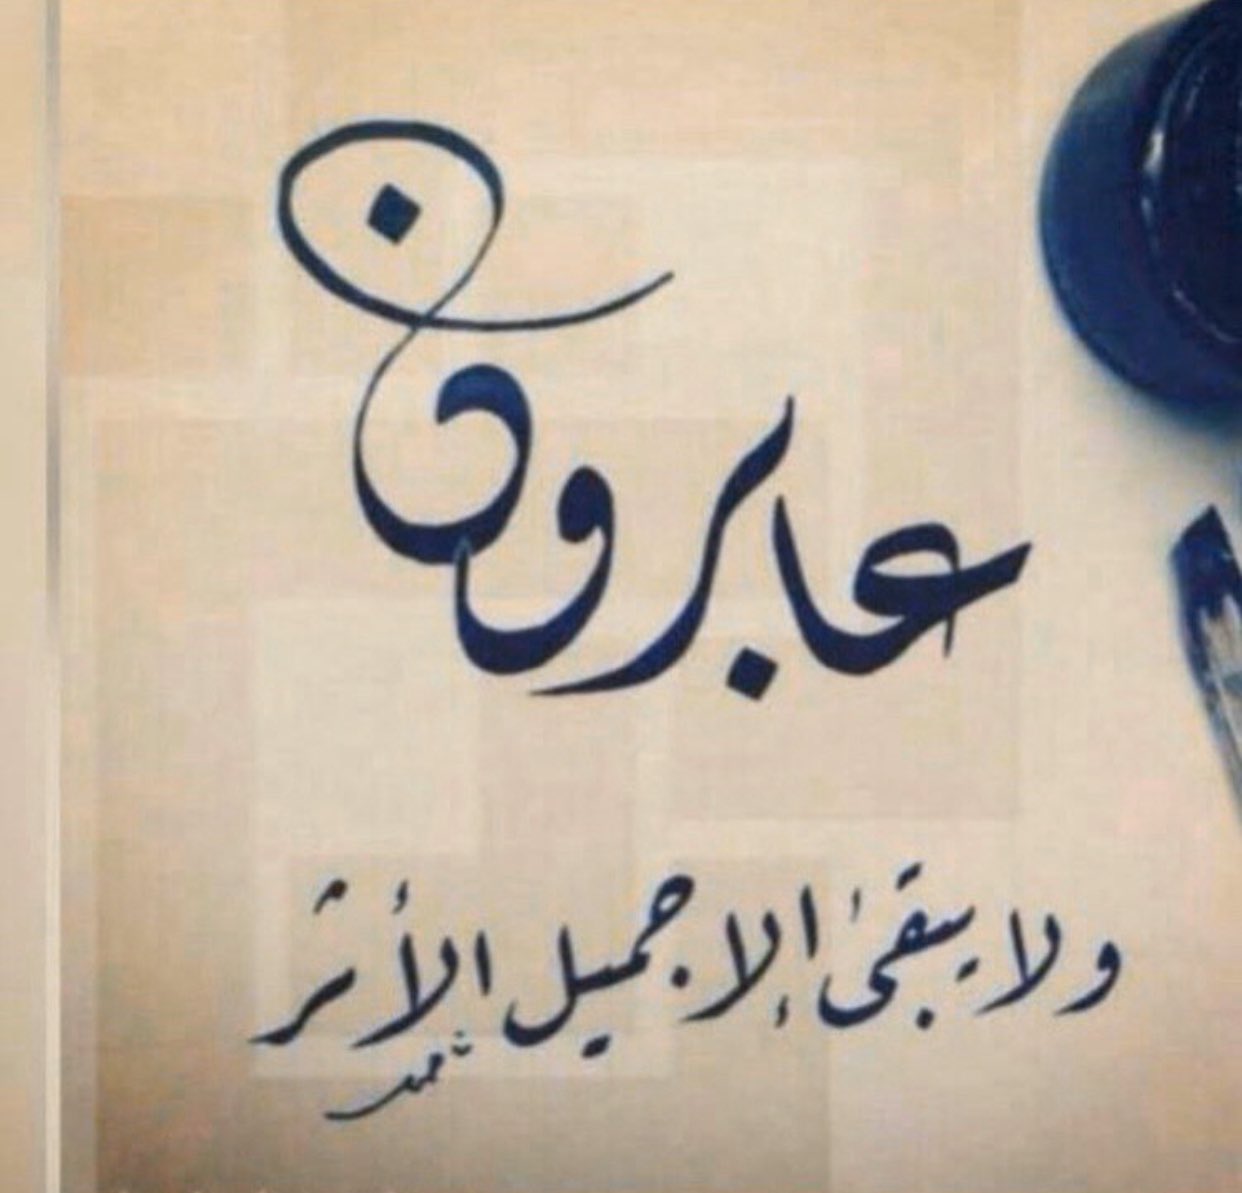 عابرون
ولا يبقىٰ إلا جميل الأثر